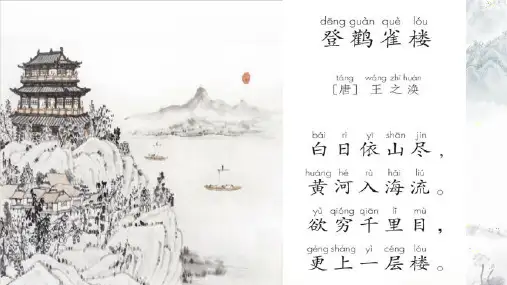 dēng guàn què lóu
登鹳雀楼
táng wáng zhī huàn
[唐] 王之涣
bái rì yī shān jìn
白日依山尽，
huáng hé rù hǎi liú
黄河入海流。
yù qióng qiān lǐ mù
欲穷千里目，
gèng shàng yì céng lóu
更上一层楼。